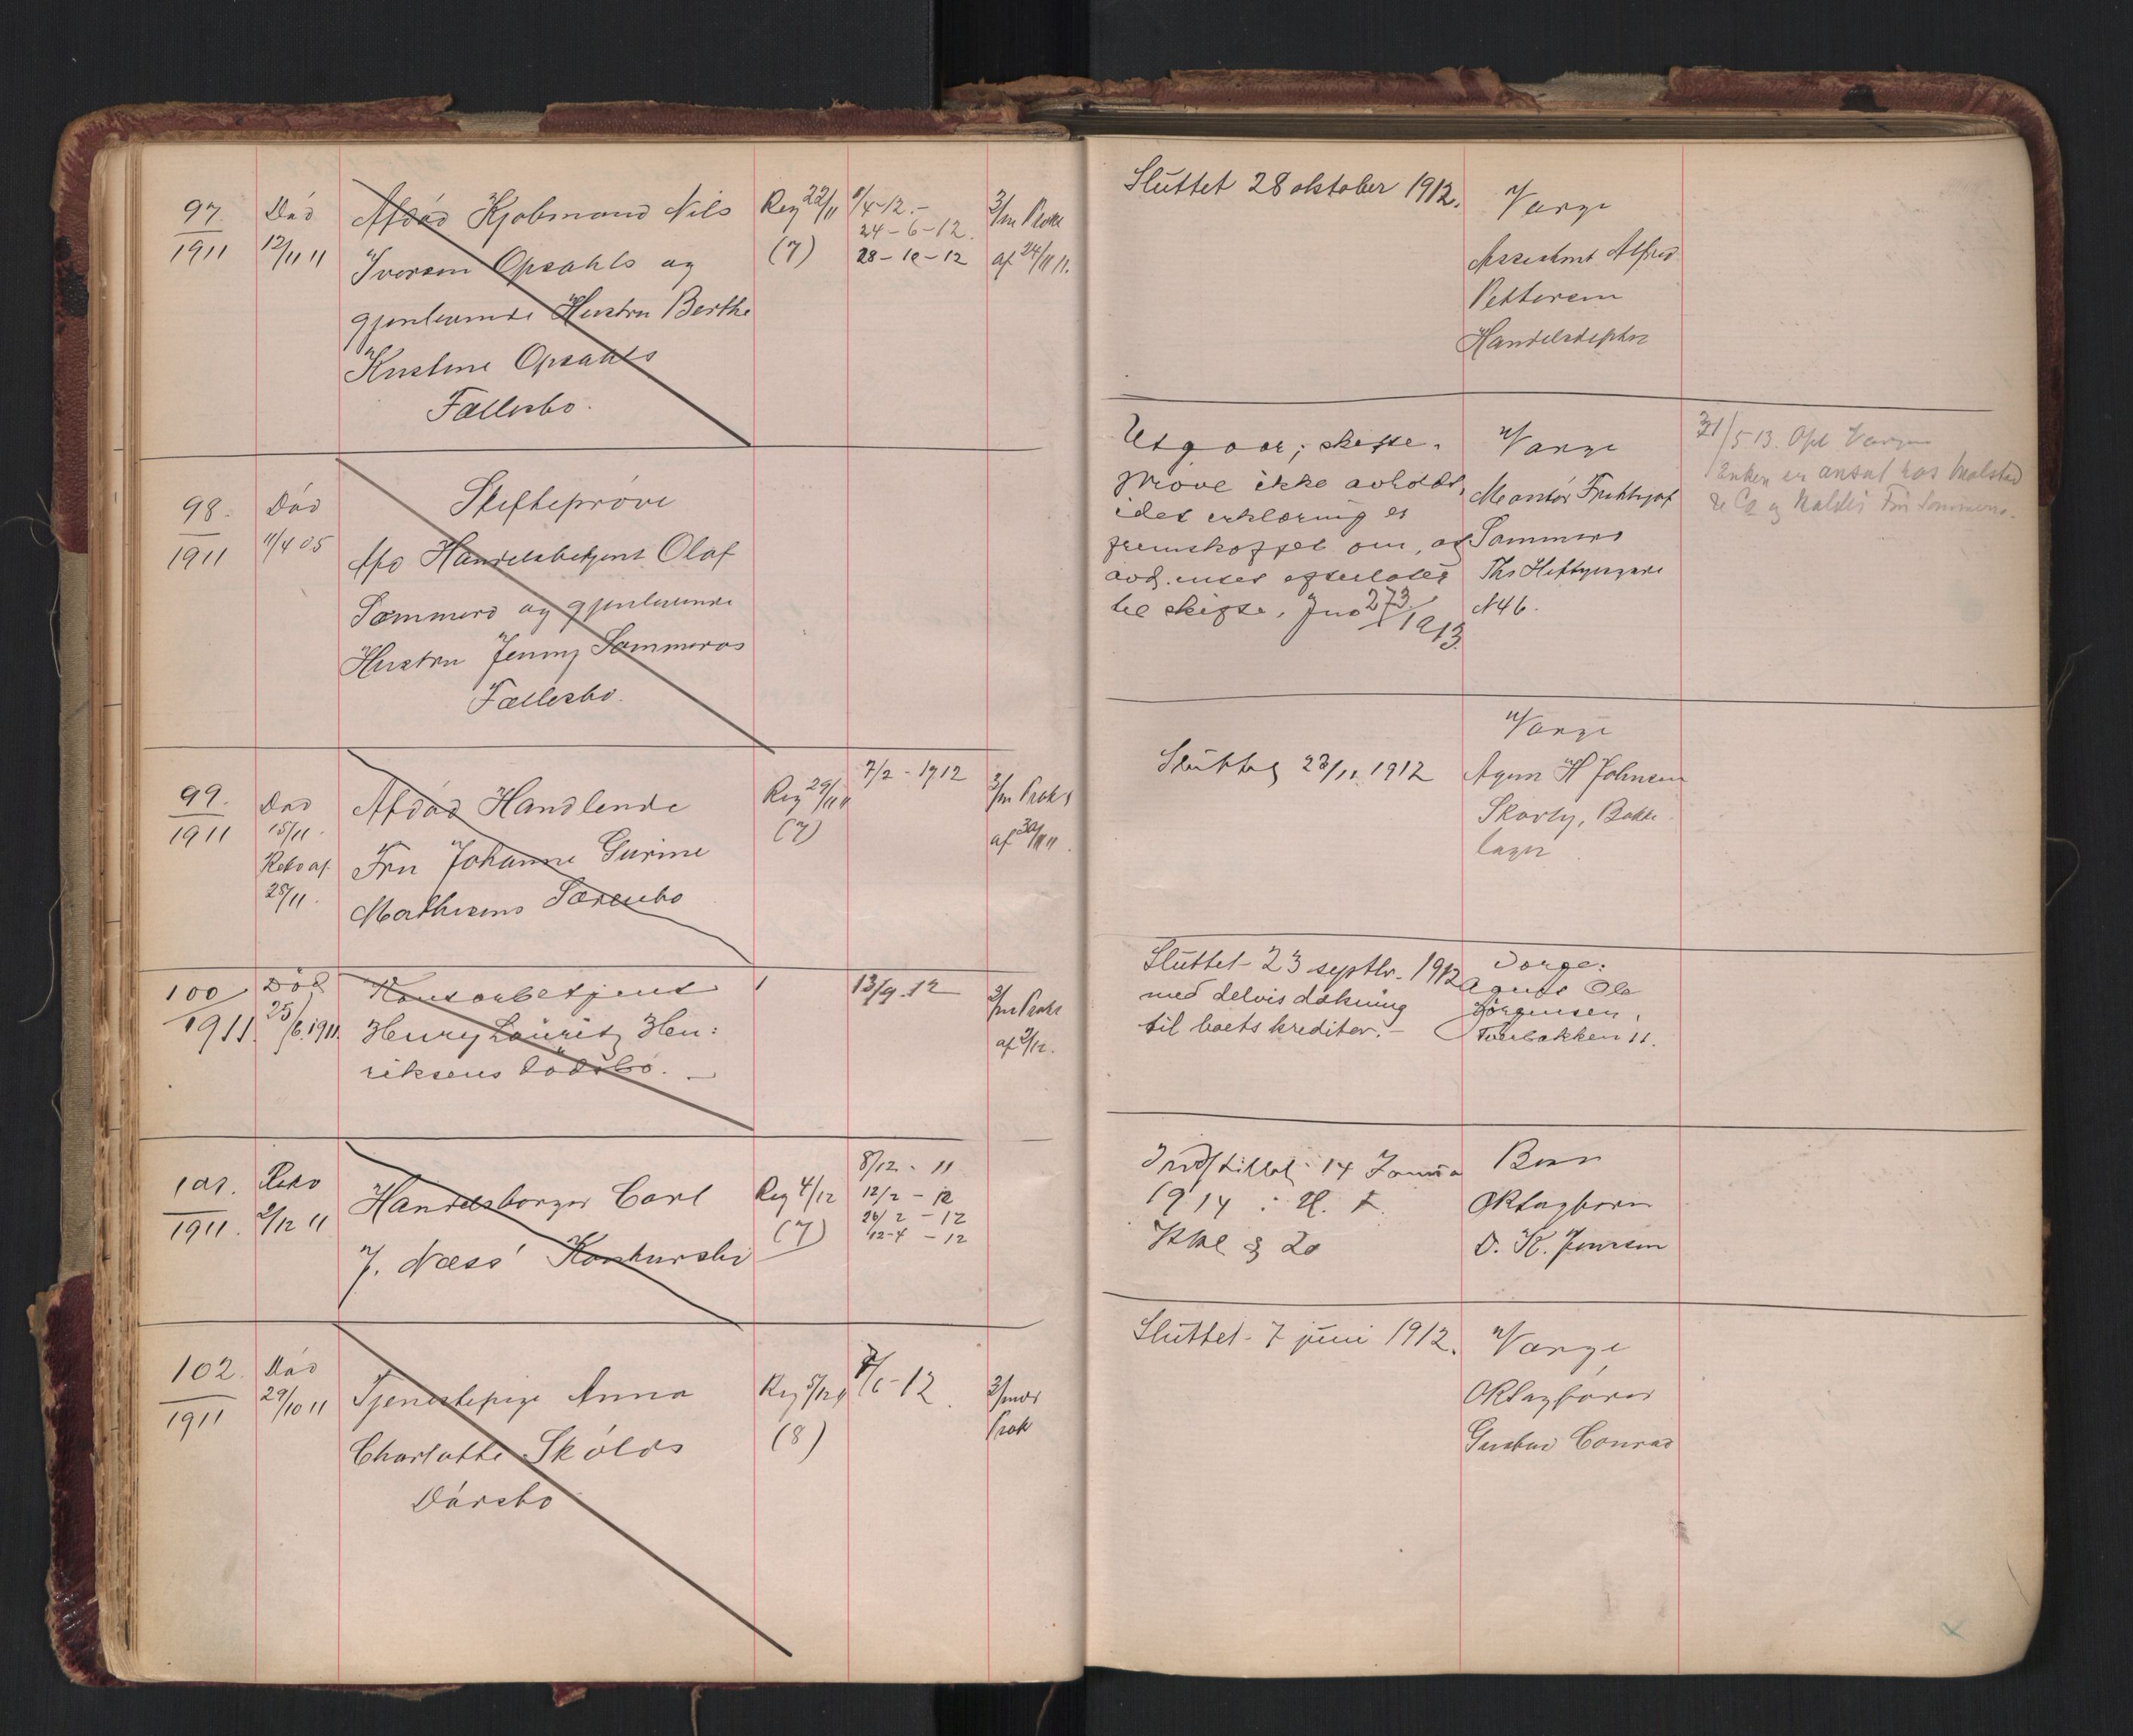 97.
1911
Død
12/11 11
Afdød Kjøbmand Nils
Iversen Opsahls og
gjenlevende Hustru Berthe
Kristine Opsahls
Fællesbo.
Reg 22/11
(7)
1/4-12.-
24-6-12.
28-10-12
3/m Prokl
af 24/11 11.
Sluttet 28 oktober 1912.
Værge
Assistent Alfred
Pettersen
98.
1911
Død
11/4 05
Skifteprøve
Handelsbetjent Olof
Sommero og gjenlevende
Hustru Jenny Sommeros
Fællesbo.
Utgaar; skifte-
prøve ikke avholdt,
idet erklæring er
fremskaffet om, at
avd. intet efterlot
til skifte. Jno 273/1913.
Værge
Montør Frithjof
Sommero
Ths Heftyesgade
N 46.
31/5 13. Opl Værgen
Enken er ansat hos
99.
1911
Død
15/11.
28/11.
Afdød Handlende
Fru Johanne Gurine
Mathisens Særebo
Reg 29/11 11
(7)
7/2-1912
3/m Prokl
af 30/11 11.
Sluttet 23/11 1912
Værge
Agent H Johnsen
100
1911.
Död
25/6.1911.
Henry Lauritz Hen:
riksens dödsbo. —
1
13/9.12
3/m Prokl
af 2/12.
Sluttet 23 septbr. 1912
med delvis dækning
til boets kreditor. —
Værge:
Agent Ole
Jörgensen,
101.
1911.
2/12 11
Handelsborger Carl
J. Næss' Konkursbo
Reg 4/12
(7)
8/12 - 11
12/2 - 12
26/2 - 12
12-4 - 12
Indstillet 14 Janua
1914 : H. t.
Kkl § 20
102.
1911
Død
29/10 11
Tjenestepige Anna
Charlotte Skölds
Dødsbo
Reg 5/12 11
(8)
7/6-12
3/mdr
Prok
Sluttet 7 juni 1912.
Værge,
Gustav Conrad